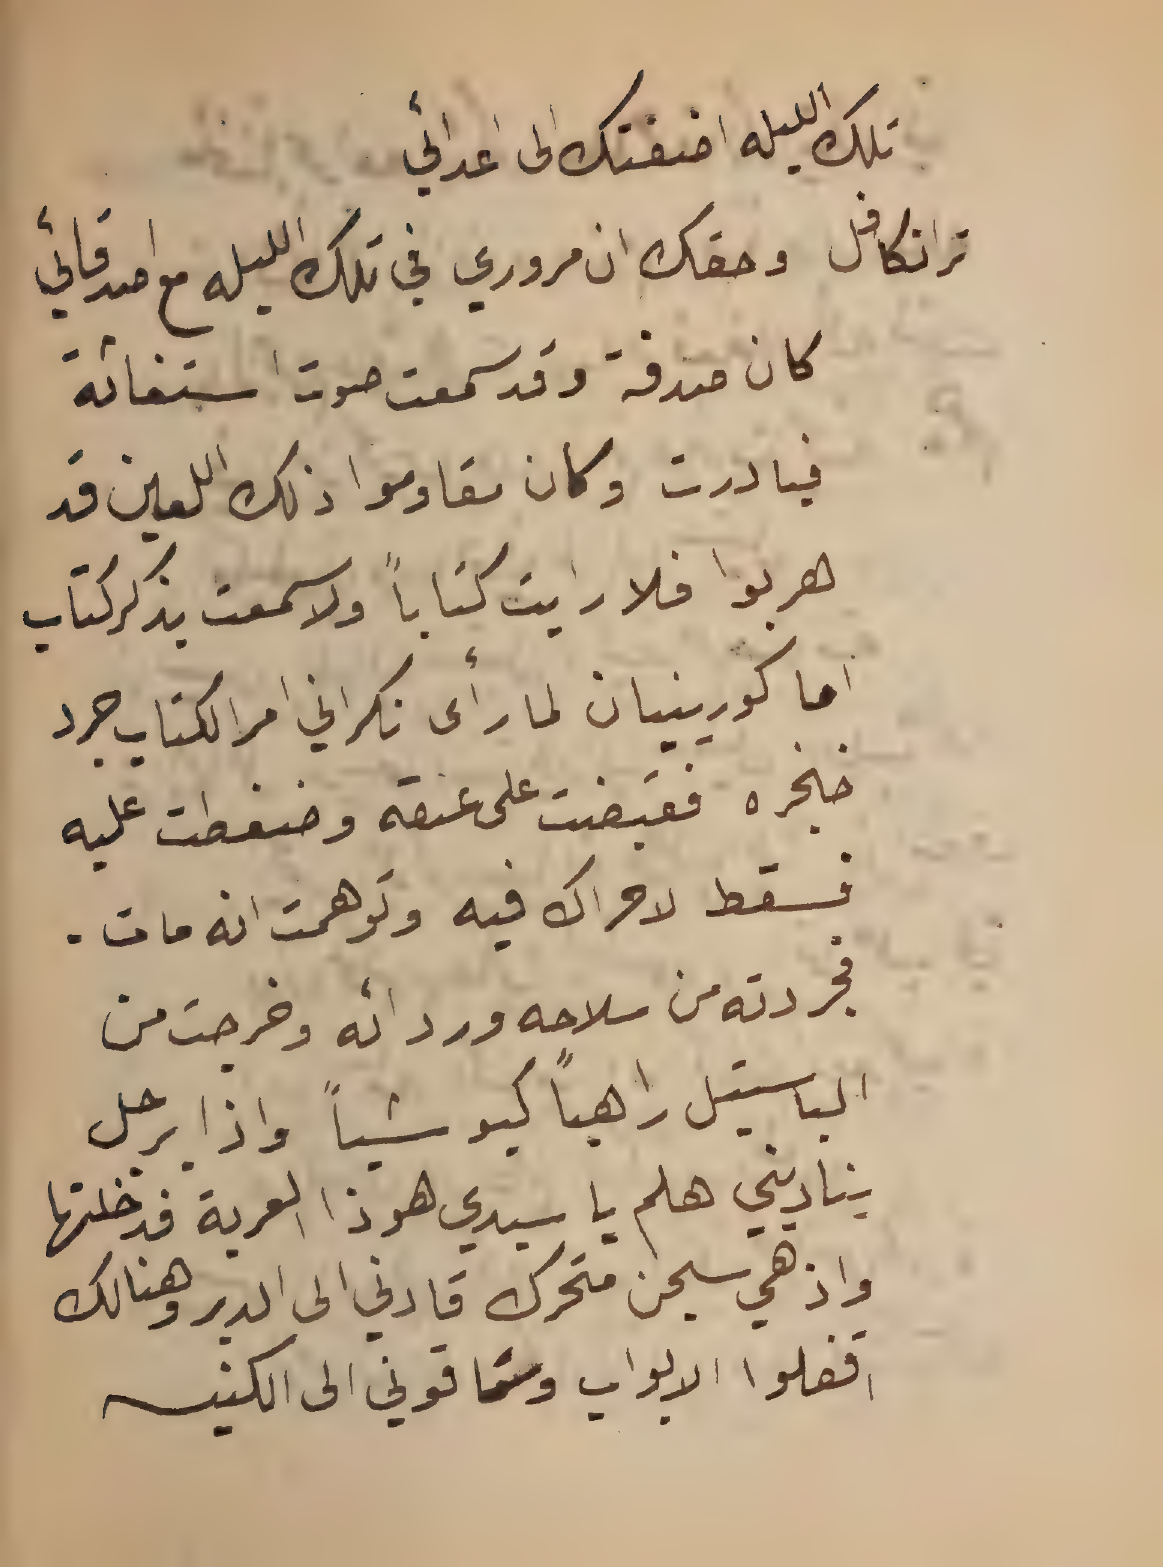 تلك الليله اضفتك الى اعدائي
ترانكافل وحقك ان مروري في تلك الليله مع اصدقائي
كان صدفة وقد سمعت صوت استغاثة
فبادرت وكان مقاوموا ذلك اللعين قد
هربوا فلا رايت كتاباً ولا سمعت بذكر كتاب
اما كورينيان لما رأى نكراني امر الكتاب جرد
خنجره فقبضت على عنقه وضغطت عليه
فسقط لا حراك فيه وتوهمت انه مات .
فجردته من سلاحه وردائه وخرجت من
الباستيل راهباً كبوشياً واذا برجل
يناديني هلم يا سيدي هوذا العربة فدخلتها
واذ هي سجن متحرك قادني الى الدير وهنالك
اقفلوا الابواب وساقوني الى الكنيسه